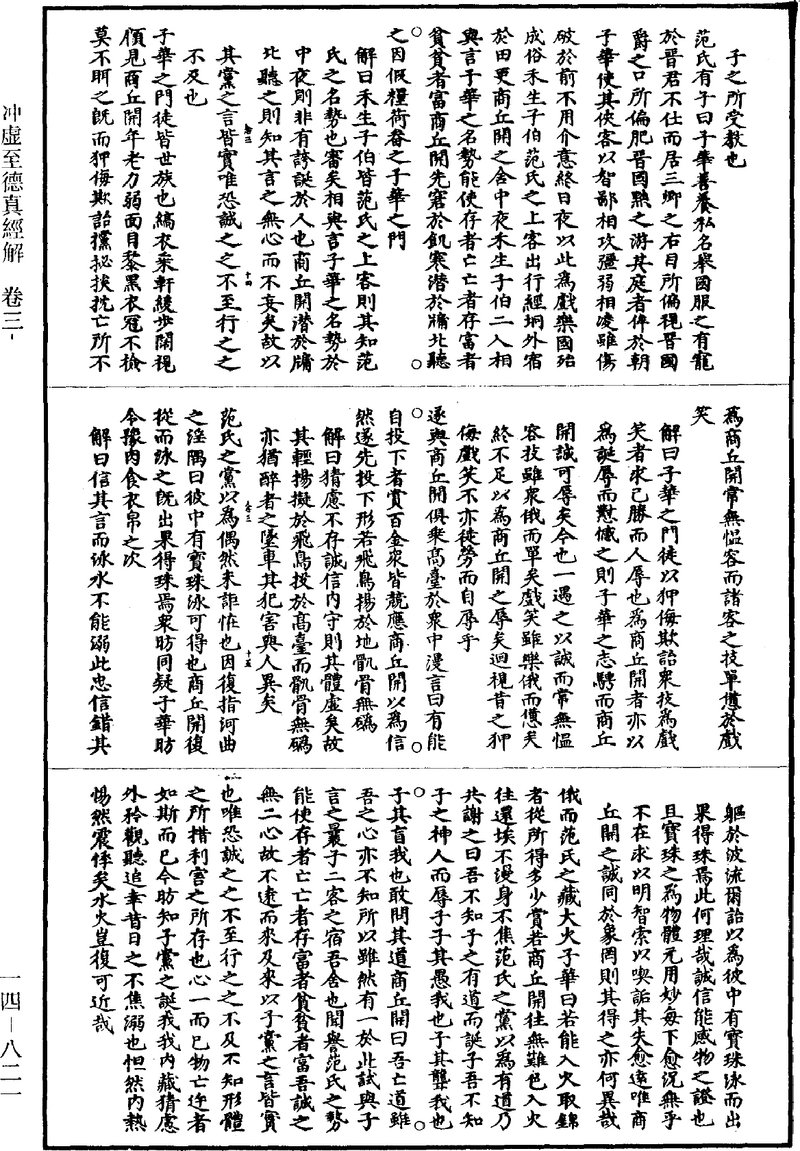 子之所受教也
范氏有子曰子華善養私名舉國服之有寵
於晉君不仕而居三卿之右目所偏視晉國
爵之口所偏肥晉國黜之游其庭者侔於朝
子華使其俠客以智鄙相攻彊弱相凌雖傷
破於前不用介意終日夜以此為戲樂國殆
成俗禾生子伯范氏之上客出行經坰外宿
於田更商丘開之舍中夜禾生子伯二人相
與言子華之名勢能使存者亡亡者存富者
貧貧者富商丘開先窘於飢寒潛於牖北聽
之因假糧荷畚之子華之門
解曰禾生子伯皆范氏之上客則其知范
氏之名勢也審矣相與言子華之名勢於
中夜則非有誇誕於人也商丘開潛於牖
北聽之則知其言之無心而不妄矣故以
其黨之言皆實唯恐誠之之不至行之之
不及也
子華之門徒皆世族也縞衣乘軒緩步闊視
顧見商丘開年老力弱面目黎黑衣冠不檢
莫不眲之既而狎侮欺詒攩㧙挨抌亡所不
為商丘開常無慍容而諸客之技單憊於戲
笑
解曰子華之門徒以狎侮欺詒衆技為戲
笑者求己勝而人辱也為商丘開者亦以
為誕辱而懟憾之則子華之志騁而商丘
開誠可辱矣今也一遇之以誠而常無慍
容技雖衆俄而單矣戲笑雖樂俄而憊矣
終不足以為商丘開之辱矣迴視昔之狎
侮戲笑不亦徒勞而自辱乎
遂與商丘開俱乘高臺於衆中漫言曰有能
自投下者賞百金衆皆競應商丘開以為信
然遂先投下形若飛鳥揚於地骪骨無䃣
解曰猜慮不存誠信內守則其體虛矣故
其輕揚擬於飛鳥投於高臺而骪骨無䃣
亦猶醉者之墜車其犯害與人異矣
范氏之黨以為偶然未詎怪也因復指河曲
之淫隅曰彼中有寶珠泳可得也商丘開復
從而泳之既出果得珠焉衆昉同疑子華昉
令豫肉食衣帛之次
解曰信其言而泳水不能溺此忠信錯其
軀於波流爾詒以為彼中有寶珠泳而出
果得珠焉此何理哉誠信能感物之證也
且寶珠之為物體元用妙每下愈況無乎
不在求以明智索以喫詬其失愈遠唯商
丘開之誠同於象罔則其得之亦何異哉
俄而范氏之藏大火子華曰若能入火取錦
者從所得多少賞若商丘開往無難色入火
往還埃不漫身不焦范氏之黨以為有道乃
共謝之曰吾不知子之有道而誕子吾不知
子之神人而辱子子其愚我也子其聾我也
子其盲我也敢問其道商丘開曰吾亡道雖
吾之心亦不知所以雖然有一於此試與子
言之曩子二客之宿吾舍也聞譽范氏之勢
能使存者亡亡者存富者貧貧者富吾誠之
無二心故不遠而來及來以子黨之言皆實
也唯恐誠之之不至行之之不及不知形體
之所措利害之所存也心一而已物亡迕者
如斯而已今昉知子黨之誕我我內藏猜慮
外矜觀聽追幸昔日之不焦溺也怛然內熱
惕然震悸矣水火豈復可近哉
冲虛至德真經解 卷三
一四—八二一